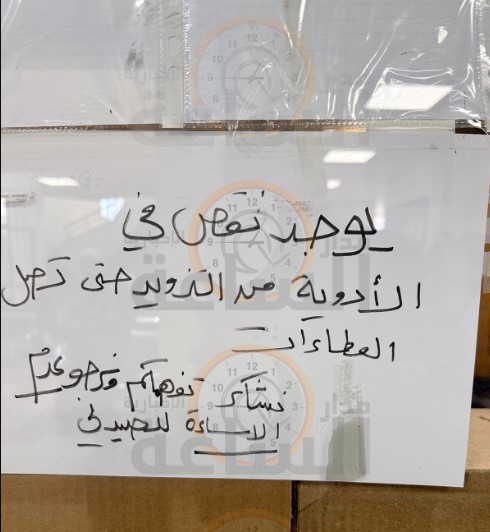 يوجد نقص في
الأدوية من التزويد حتى تصل
العطاءات
نشكر تفهمكم ونرجو عدم
الاساءة للصيدلي
مدار
الساعة
الاخبارية